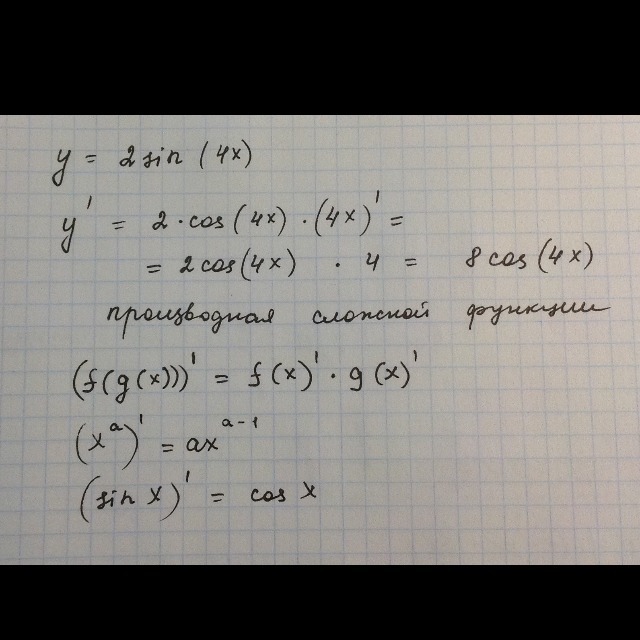 y = 2 sin (4x)
y' = 2 · cos (4x) · (4x)' =
= 2 cos (4x) · 4 = 8 cos (4x)
производная сложной функции
(f(g(x)))' = f(x)' · g(x)'
(x^a)' = ax^(a-1)
(sin x)' = cos x